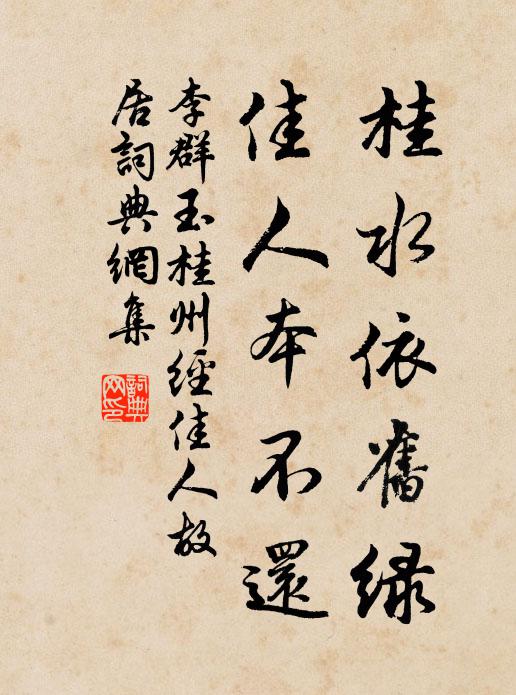 桂水依舊綠
佳人本不還
李群玉桂州經佳人故
居詞典網集
詞典
网印